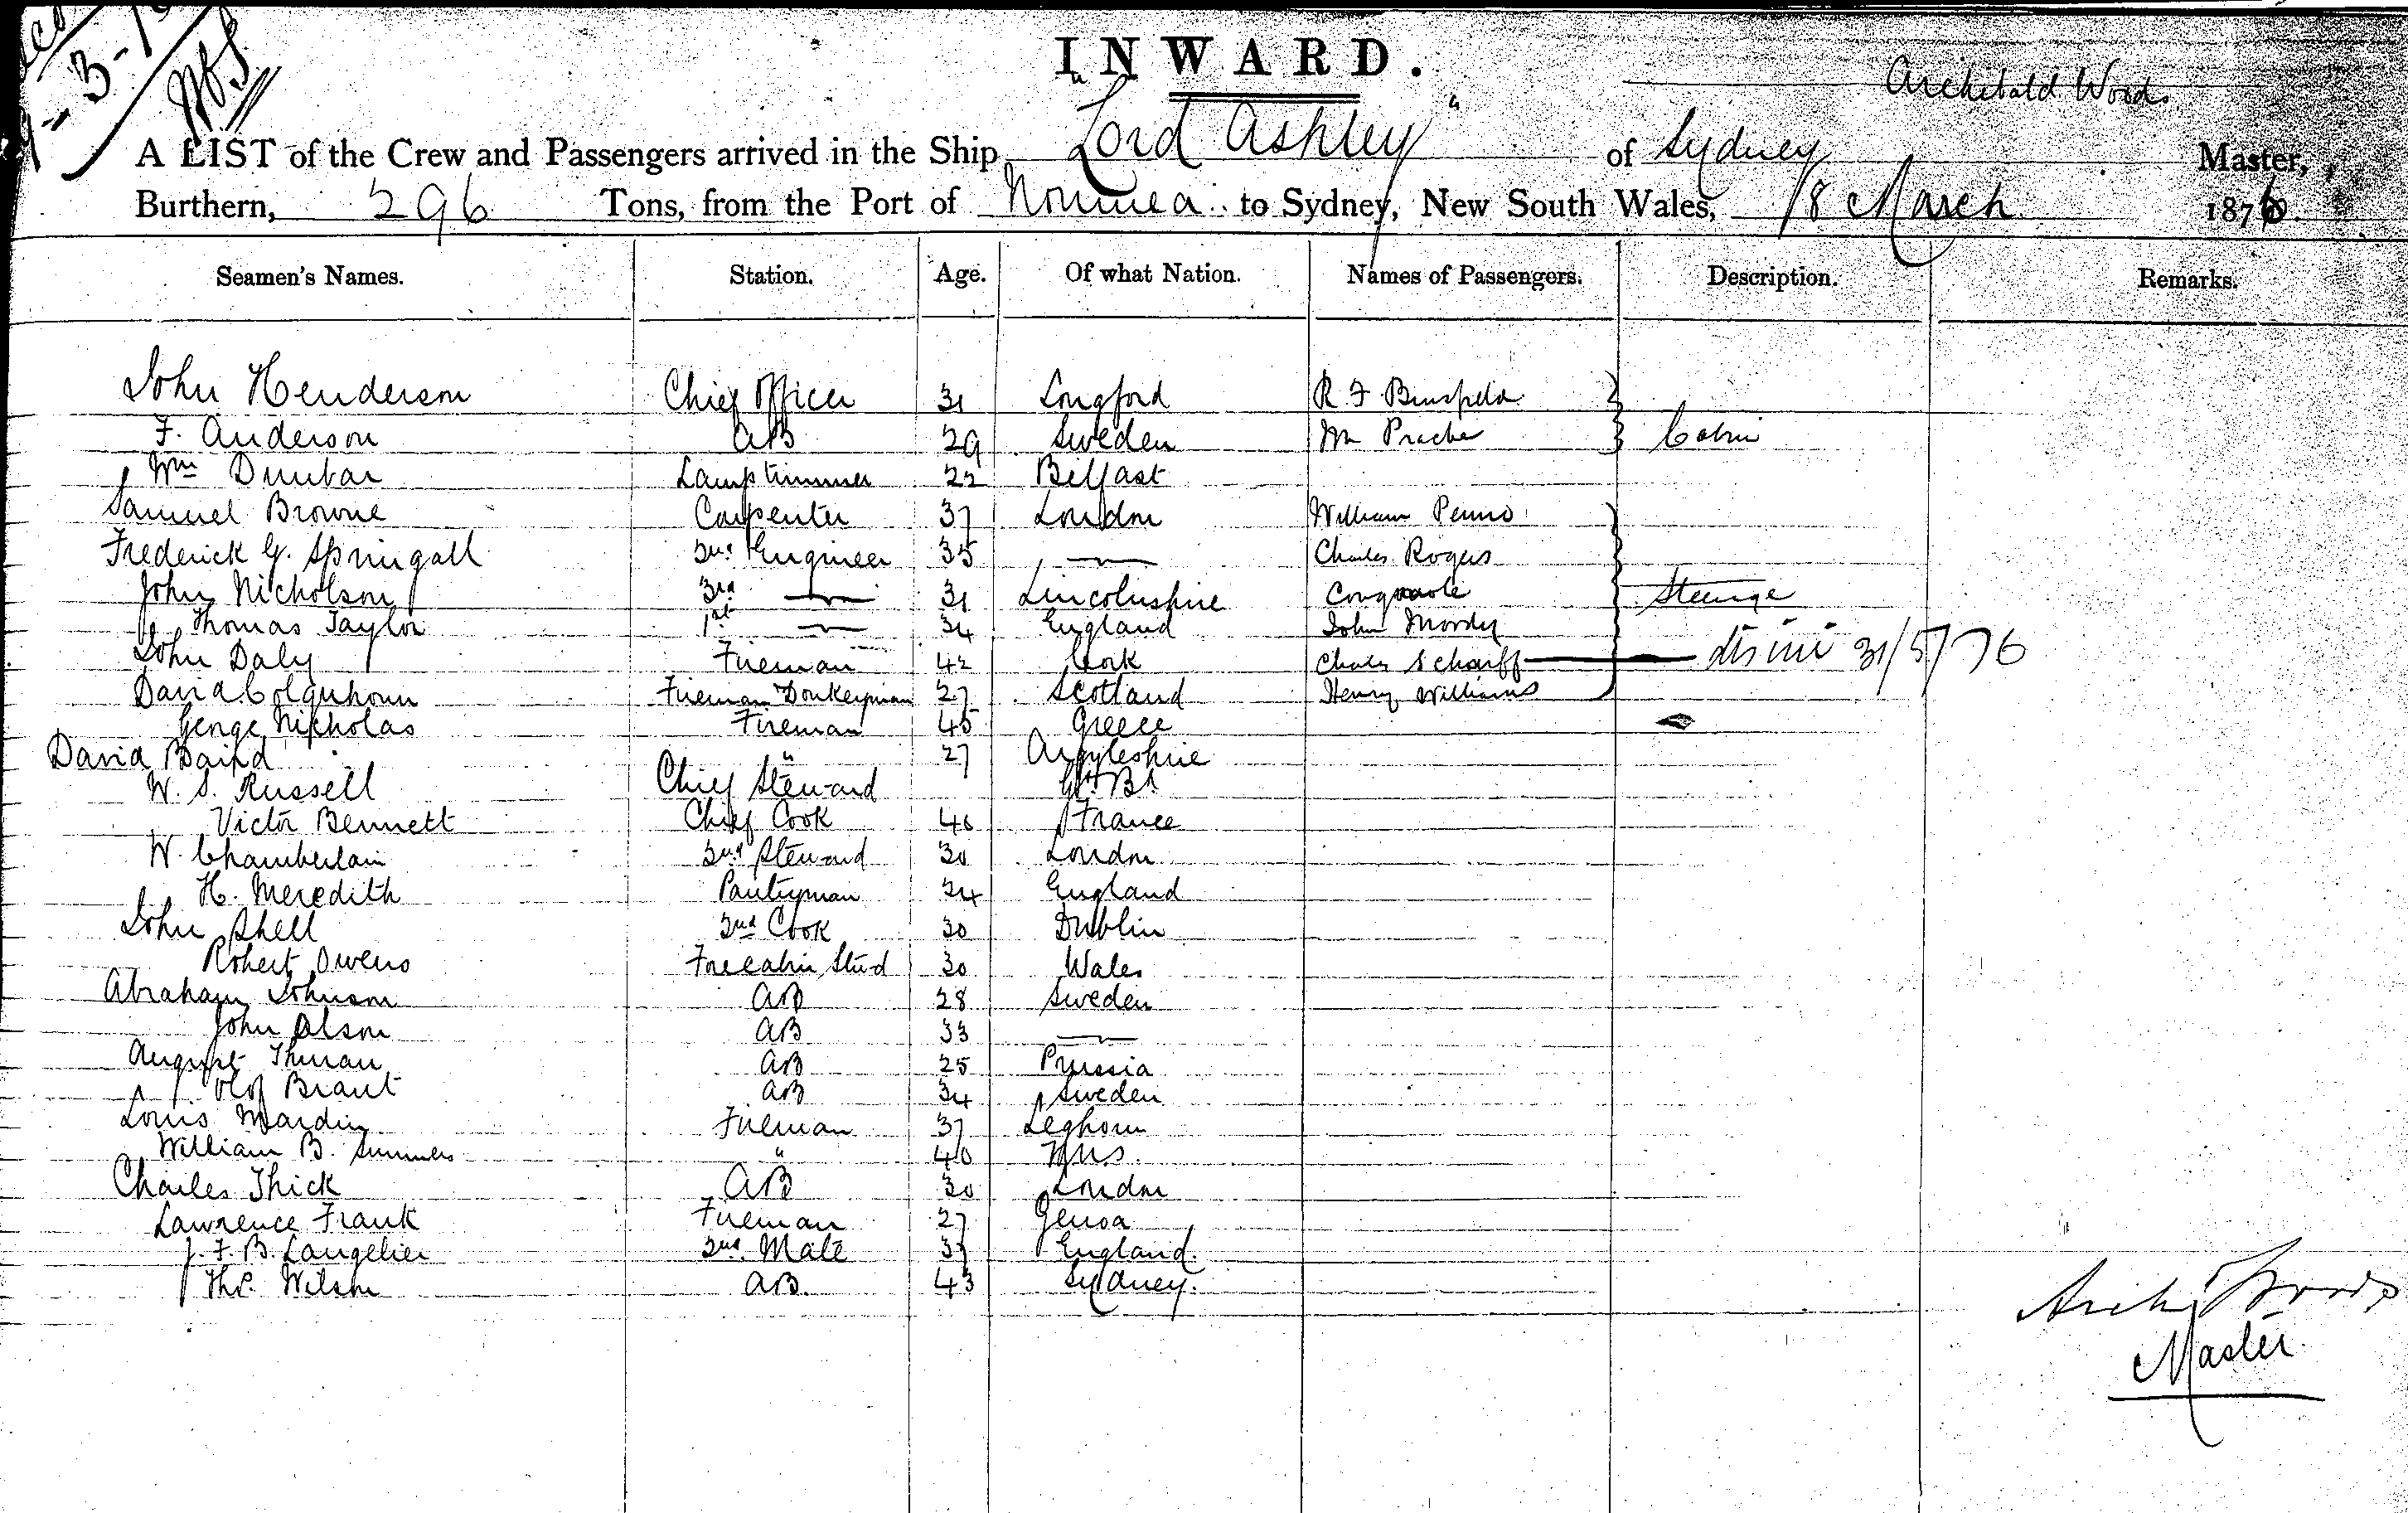 INWARD.
Archibald Woods
A LIST of the Crew and Passengers arrived in the Ship "Lord Ashley" of Sydney Master,
Burthern, 296 Tons, from the Port of Noumea to Sydney, New South Wales, 18 March 1876.
Seamen's Names. Station. Age. Of what Nation. Names of Passengers. Description. Remarks.
John Henderson Chief Officer 31 Longford R F
F. Anderson AB 29 Sweden Wm Cabin
Wm Dunbar Lamptrimmer 22 Belfast
Samuel Browne Carpenter 37 London William
Frederick G. Springall 2nd Engineer 35 — Charles Rogers
John Nicholson 3rd — 31 Lincolnshire Steerage
Thomas Taylor 1st — 34 England John Moody
John Daly Fireman 42 Cork Charles Scharff 31/5/76
David Colquhoun Fireman Donkeyman 27 Scotland Henry Williams
George Nicholas Fireman 45 Greece
David Baird " 27 Argyleshire
W. S. Russell Chief Steward Gt. Bt.
Victor Bennett Chief Cook 46 France
W. Chamberlain 2nd Steward 30 London
H. Meredith Pantryman 24 England
John Shell 2nd Cook 30 Dublin
Robert Owens Forecabin Stwd 30 Wales
Abraham Johnson AB 28 Sweden
John Olson AB 33 —
August Thuran AB 25 Prussia
Olof Brant AB 34 Sweden
Louis Mardin Fireman 37 Leghorn
William B. Summers " 40
Charles Thick AB 30 London
Lawrence Frank Fireman 27 Genoa
J. F. B. Langelier 2nd Mate 37 England.
Thos. Wilson AB. 43 Sydney.
Arch Woods
Master